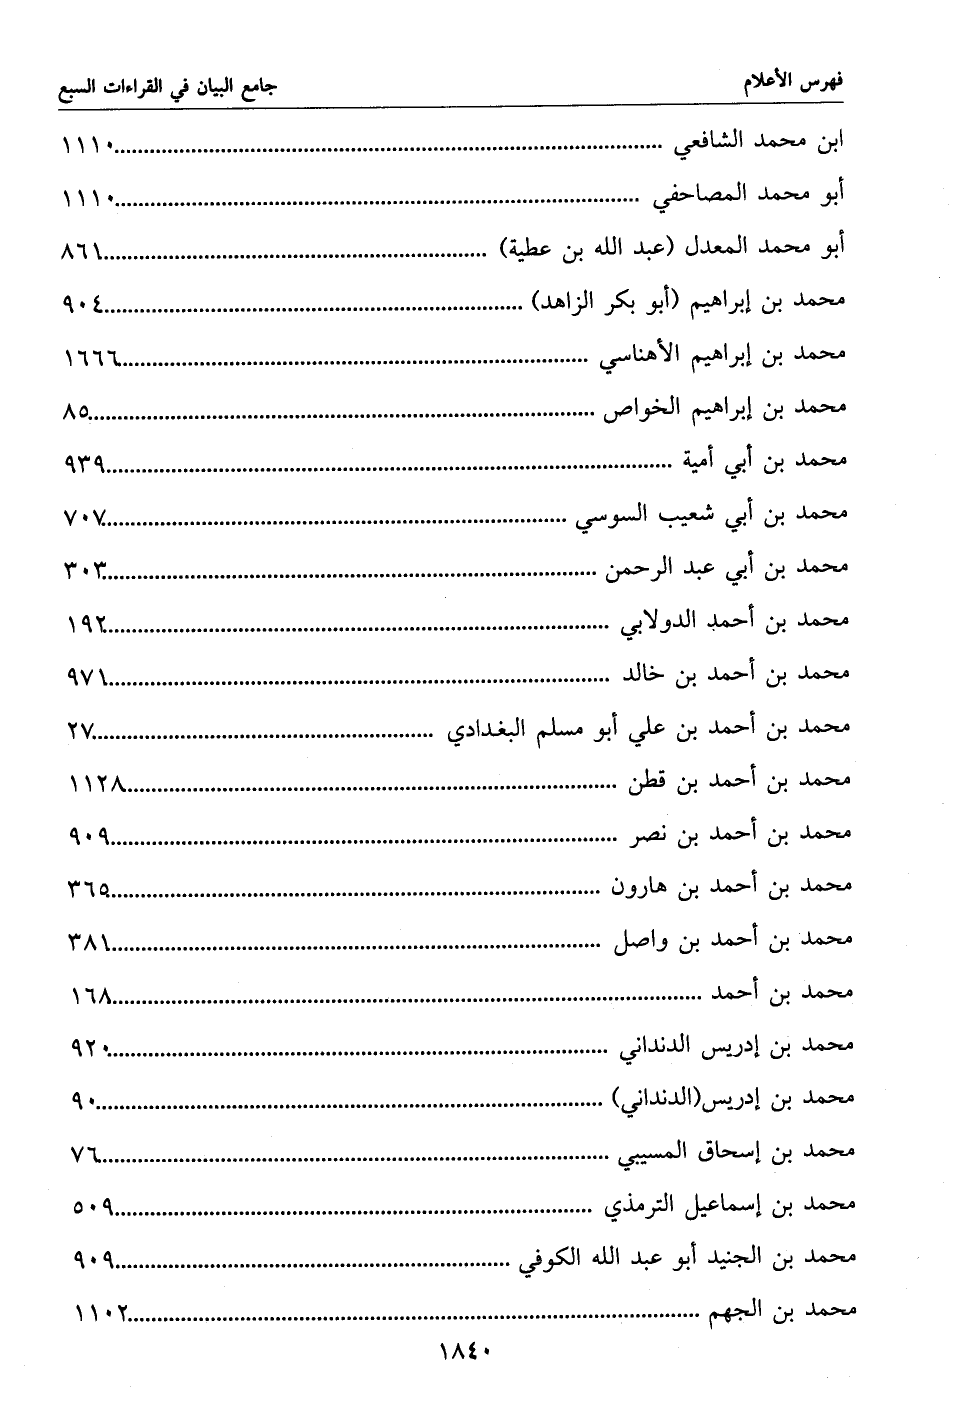 فهرس الأعلام جامع البيان في القراءات السبع
ابن محمد الشافعي ........ ١١١٠
أبو محمد المصاحفي ........ ١١١٠
أبو محمد المعدل (عبد الله بن عطية) ........ ٨٦١
محمد بن إبراهيم (أبو بكر الزاهد) ........ ٩٠٤
محمد بن إبراهيم الأهناسي ........ ١٦٦٦
محمد بن إبراهيم الخواص ........ ٨٥
محمد بن أبي أمية ........ ٩٣٩
محمد بن أبي شعيب السوسي ........ ٧٠٧
محمد بن أبي عبد الرحمن ........ ٣٠٣
محمد بن أحمد الدولابي ........ ١٩٢
محمد بن أحمد بن خالد ........ ٩٧١
محمد بن أحمد بن علي أبو مسلم البغدادي ........ ٢٧
محمد بن أحمد بن قطن ........ ١١٢٨
محمد بن أحمد بن نصر ........ ٩٠٩
محمد بن أحمد بن هارون ........ ٣٦٥
محمد بن أحمد بن واصل ........ ٣٨١
محمد بن أحمد ........ ١٦٨
محمد بن إدريس الدنداني ........ ٩٢٠
محمد بن إدريس(الدنداني) ........ ٩٠
محمد بن إسحاق المسيبي ........ ٧٦
محمد بن إسماعيل الترمذي ........ ٥٠٩
محمد بن الجنيد أبو عبد الله الكوفي ........ ٩٠٩
محمد بن الجهم ........ ١١٠٢
١٨٤٠